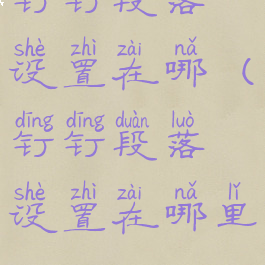 钉钉段落
shè zhì zài nǎ
设置在哪（
dīng dīng duàn luò
钉钉段落
shè zhì zài nǎ lǐ
设置在哪里